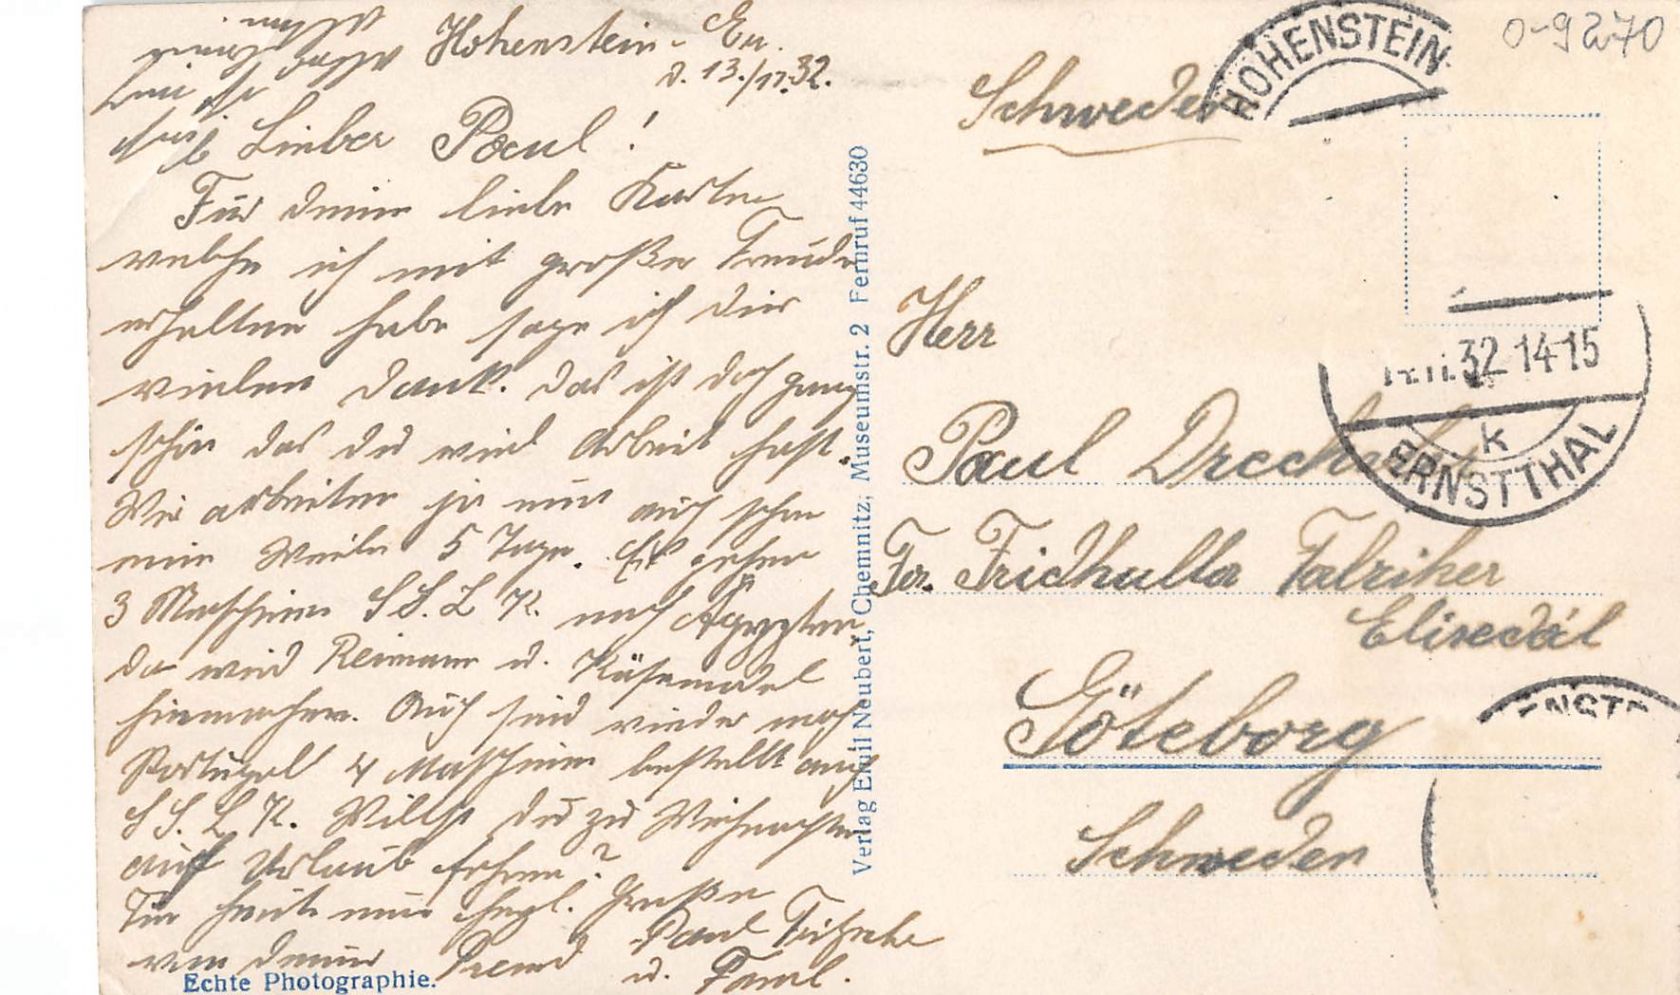 Hohenstein-Er.
d. 13./11.32.
Lieber Paul!
Für deine liebe Karte
welche ich mit großer Freude
erhalten habe sage ich dir
vielen Dank. Das ist doch ganz
schön das du viel Arbeit hast.
Wir arbeiten ja nun auch schon
eine Weile 5 Tage. Es gehen
3 Maschinen S S. L K. nach Ägypten
da wird Reimann u. Käsemodel
hinmachen. Auch sind wieder nach
Portugal 4 Maschinen bestellt auch
S S. L K. Willst du zu Weihnachten
auf Urlaub fahren?
Für heute nun herzl. Grüße
von deinen Freund Paul Fritzsche
u. Faml.
Echte Photographie.
Verlag Emil Neubert, Chemnitz, Museumstr. 2 Fernruf 44630
0-9270
HOHENSTEIN
32 14-15
K
ERNSTTHAL
Schweden
Herr
Paul Drechsel
Fridhulla Fabriker
Elisedal
Göteborg
Schweden